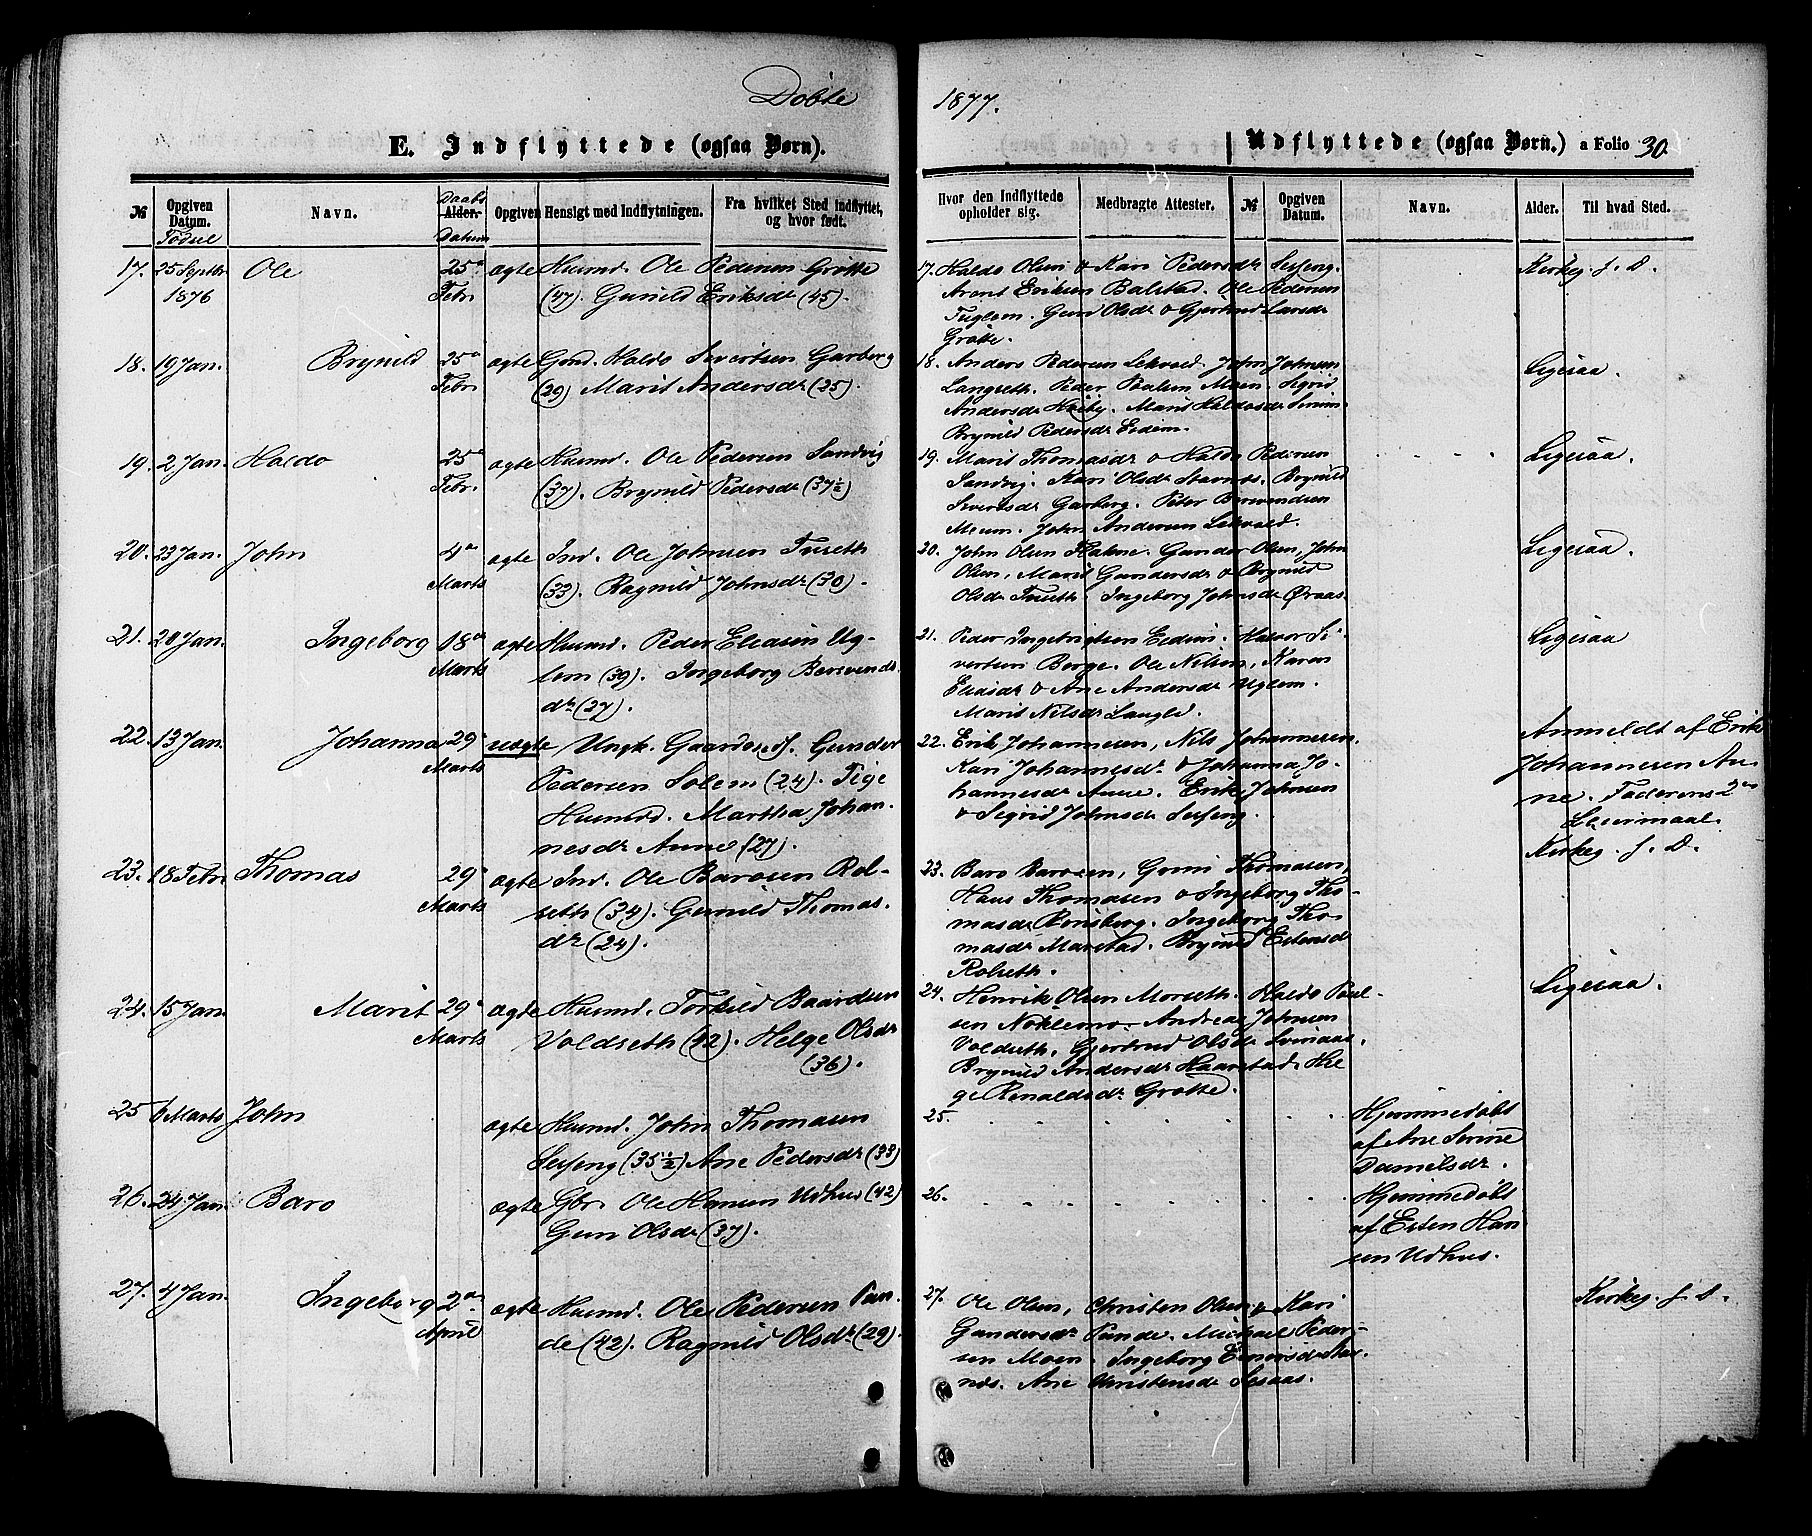 Döbte
1877.
E. Indflyttede (ogsaa Børn).
Udflyttede (ogsaa Børn.) a Folio 30.
№
Opgiven Datum.
Födsel
Navn.
Daabs
Alder.
Datum
Opgiven Hensigt med Indflytningen.
Fra hvilket Sted indflyttet, og hvor født.
Hvor den Indflyttede opholder sig.
Medbragte Attester.
№
Opgiven Datum.
Navn.
Alder.
Til hvad Sted.
17. 25 Septbr 1876 Ole 25de Febr. ægte Huusmd. Ole Pedersen Grötte
(47). Gunild Eriksdr (45).
17. Haldo Olsen & Kari Pedersdr Sesseng.
Arent Eriksen Balstad. Ole Pedersen
Fuglem. Guri Olsdr & Gjertrud Larsdr
Grötte.
Kirkeg. f. D.
18. 19 Jan. Brynild 25de Febr. ægte Gmd. Haldo Sivertsen Garberg
(29) Marit Andersdr (25).
18. Anders Pedersen Lekvold. John Johnsen
Langseth. Peder Paulsen Moen. Sigrid
Andersdr Høiby. Marit Haldosdr
Brynild Pedersdr Eidem.
Ligesaa.
19. 2 Jan. Haldo 25de Febr. ægte Huusmd. Ole Pedersen Sandvig
(37). Brynild Pedersdr (37½)
19. Marit Thomasdr & Haldo Pedersen
Sandvig. Kari Olsdr Stamnæs. Brynild
Sivertsdr Garberg. Peter Bersvendsen
John Andersen Lekvold.
Ligesaa.
20. 23 Jan. John 4de Marts ægte Ind. Ole Johnsen Fuseth
(33). Ragnild Johnsdr (30).
20. John Olsen Flakne. Gunder Olsen, John
Olsen, Marit Gundersdr & Brynild
Olsdr Fuseth. Ingeborg Johnsdr Øraas.
Ligesaa.
21. 20 Jan. Ingeborg 18de Marts ægte Huusmd. Peder Eliasen Ug-
lem (39). Ingeborg Bersvends
dr (27).
21. Peder Ingebrigtsen Eidem. Halvor Si-
vertsen Borge. Ole Nilsen, Karen
Eliasdr & Ane Andersdr Uglem.
Marit Nilsdr Langlo.
Ligesaa
22. 13 Jan. Johanna 29de Marts uægte Ungk. Gaardms. S. Gunder
Pedersen Solem (24). Pige
Huusmd. Martha Johan-
nesdr Aune (27).
22. Erik Johannesen, Nils Johannesen,
Kari Johannesdr & Johanna Jo-
hannesdr Aune. Erik Johnsen
& Sigrid Johnsdr Sesseng.
Anmeldt af Erik
Johannesen Au-
ne. Faderens 2det
Leiermaal.
23. 18 Febr. Thomas 29de Marts ægte Ind. Ole Barosen Rol-
seth (34). Gunild Thomas-
dr (24).
23. Baro Barosen, Thomasen,
Hans Thomasen & Ingeborg Tho-
masdr Rønsberg. Ingeborg Tho-
masdr Marstad. Brynild Estensdr
Rolseth.
Kirkeg. f. D.
24. 15 Jan. Marit 29de Marts ægte Huusmd. Torkild Baardsen
Voldseth (42). Helge Olsdr
(36).
24. Henrik Olsen Morseth. Haldo Paul-
sen Noklemo. Andreas Johnsen
Voldseth. Gjertrud Olsdr
Brynild Andersdr Haarstad. Hel-
ge Renaldsdr Grötte.
Ligesaa.
25 6 Marts John ægte Huusmd. John Thomasen
Sesseng (35½) Ane Pedersdr (33)
25.
Hjemmedöbt
af Ane Serine
Danielsdr.
26. 24 Jan. Baro ægte Gbr. Ole Hansen Udhus (42)
Guri Olsdr (37).
26.
Hjemmedöbt
af Esten Han
sen Udhus.
27. 4 Jan. Ingeborg 2den April ægte Huusmd. Ole Pedersen Pun-
de (42). Ragnild Olsdr (29).
27. Ole Olsen, Christen Olsen & Kari
Gundersdr Punde. Michael Peder-
sen Moen. Ingeborg Einarsdr Stam-
næs. Ane Christensdr Sesaas.
Kirkeg. f. D.